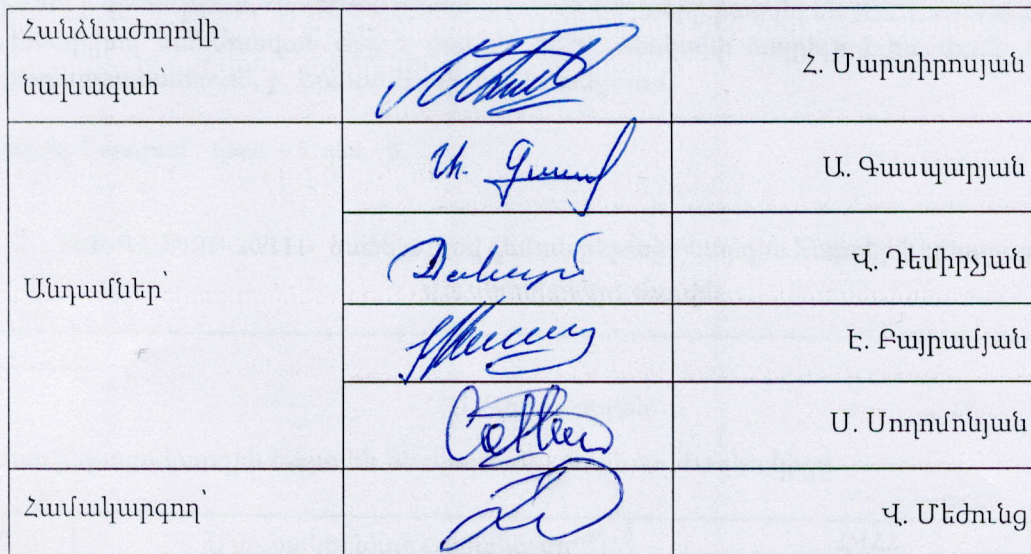 Հանձնաժողովի
նախագահ՝
Հ. Մարտիրոսյան
Ա. Գասպարյան
Անդամներ՝
Վ. Դեմիրչյան
Է. Բայրամյան
Ս. Սողոմոնյան
Համակարգող՝
Վ. Մեծունց